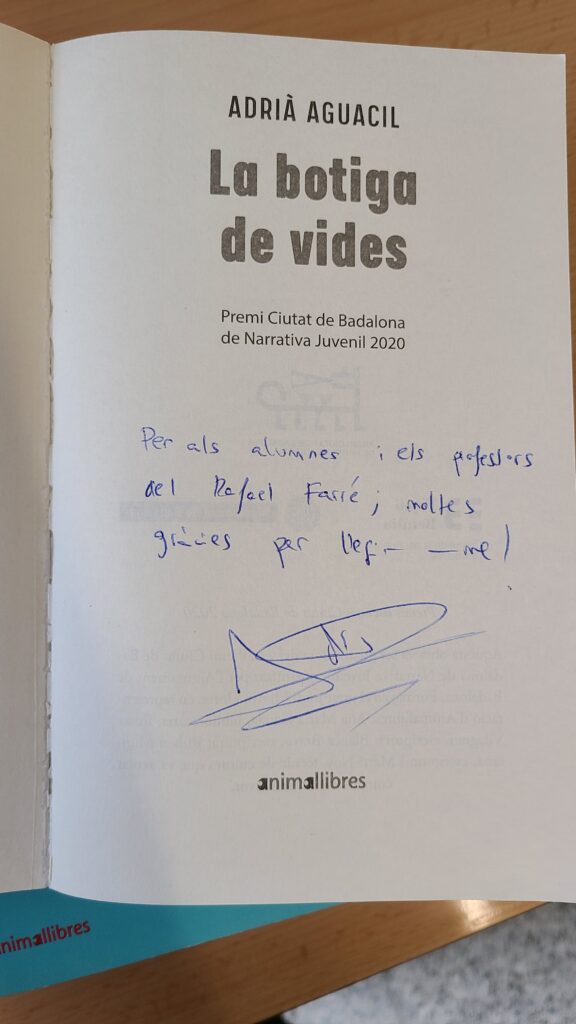 ADRIÀ AGUACIL
La botiga
de vides
Premi Ciutat de Badalona
de Narrativa Juvenil 2020
Per als alumnes i els professors
del Rafael Farré; moltes
gràcies per llegir-me!
animallibres
animallibres